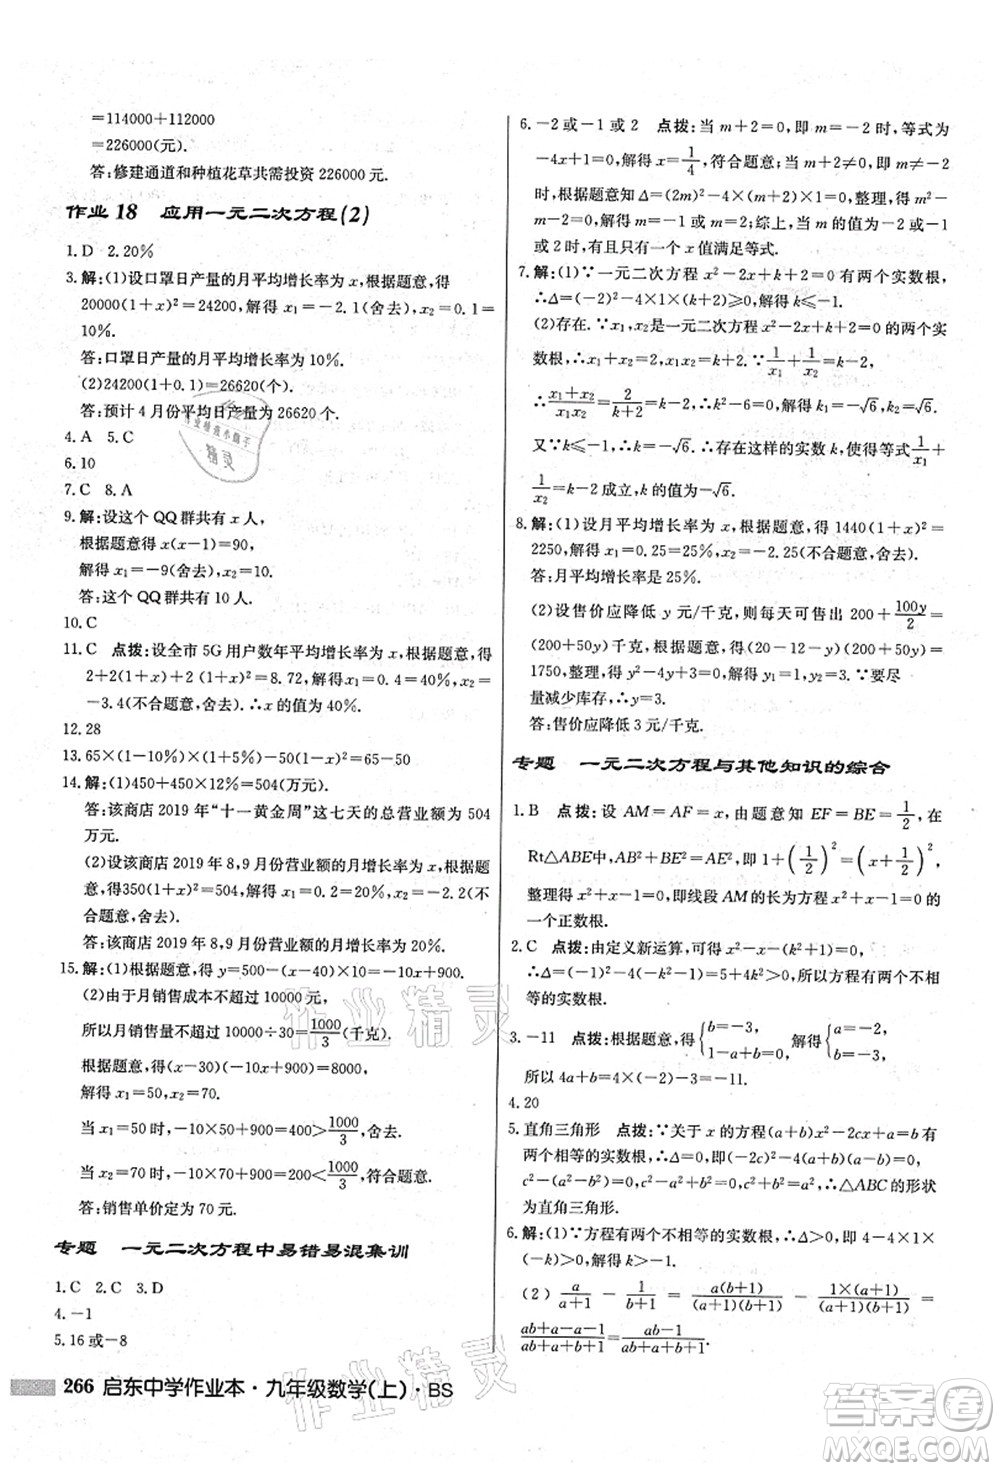 =114000+112000
=226000(元).
答:修建通道和种植花草共需投资 226000 元.
作业 18 应用一元二次方程(2)
1. D 2. 20%
3. 解:(1)设口罩日产量的月平均增长率为 x,根据题意,得
20000(1+x)²=24200,解得 x₁=-2.1(舍去),x₂=0.1=
10%.
答:口罩日产量的月平均增长率为 10%.
(2)24200(1+0.1)=26620(个).
答:预计 4 月份平均日产量为 26620 个.
4. A 5. C
6. 10
7. C 8. A
9. 解:设这个 QQ 群共有 x 人,
根据题意得 x(x-1)=90,
解得 x₁=-9(舍去),x₂=10.
答:这个 QQ 群共有 10 人.
10. C
11. C 点拨:设全市 5G 用户数年平均增长率为 x,根据题意,得
2+2(1+x)+2(1+x)²=8.72,解得 x₁=0.4,x₂=
-3.4(不合题意,舍去).∴x 的值为 40%.
12. 28
13. 65×(1-10%)×(1+5%)-50(1-x)²=65-50
14. 解:(1)450+450×12%=504(万元).
答:该商店 2019 年“十一黄金周”这七天的总营业额为 504
万元.
(2)设该商店 2019 年 8,9 月份营业额的月增长率为 x,依题意,
得350(1+x)²=504,解得 x₁=0.2=20%,x₂=-2.2(不
合题意,舍去).
答:该商店 2019 年 8,9 月份营业额的月增长率为 20%.
15. 解:(1)根据题意,得 y=500-10(x-50)=1000-10x.
(2)由于月销售成本不超过 10000 元,
所以月销售量不超过 10000÷40=1000/3(千克).
根据题意,得(x-30)(1000-10x)=8000,
解得 x₁=50,x₂=70.
当 x₁=50 时,-10×50+1000=500>1000/3,舍去;
当 x₂=70 时,-10×70+1000=300<1000/3,符合题意.
答:销售单价应定为 70 元.
专题 一元二次方程中易错易混集训
1. C 2. C 3. D
4. -1
5. 16 或-8
6. -2或-1或 2 点拨:当 m+2=0,即 m=-2 时,等式为
-4x-1=0,解得 x=-1/4,符合题意;当 m+2≠0,即 m≠
-2 时,根据题意知 Δ=(2m)²-4×(m+2)×(-1)=0,
解得 m=-1 或 m=2;综上,当 m=-2 或 m=-1 或 m=2
时,有且只有一个 x 值满足等式.
7. 解:(1)∵一元二次方程 x²-2x+k+2=0 有两个实数根,
∴Δ=(-2)²-4×1×(k+2)≥0,解得 k≤-1.
(2)存在.∵x₁,x₂ 是一元二次方程 x²-2x+k+2=0 的两个实
数根,∴x₁+x₂=2,x₁x₂=k+2.∵1/x₁+1/x₂=k-2,
∴(x₁+x₂)/(x₁x₂)=2/(k+2)=k-2,∴k²-6=0,解得 k₁=-√6,k₂=√6.
又∵k≤-1,∴k=-√6.∴存在这样的实数 k,使得等式 1/x₁+
1/x₂=k-2 成立,k 的值为-√6.
8. 解:(1)设月平均增长率为 x,根据题意,得 1440(1+x)²=
2250,解得 x₁=0.25=25%,x₂=-2.25(不合题意,舍去).
答:月平均增长率是 25%.
(2)设售价应降低 y 元/千克,则每天可售出 200+100y/2=
(200+50y)千克,根据题意,得(20-12-y)(200+50y)=
1750,整理,得 y²-4y+3=0,解得 y₁=1,y₂=3.∵要尽
量减少库存,∴y=3.
答:售价应降低 3 元/千克.
专题 一元二次方程与其他知识的综合
1. B 点拨:设 AM=AF=x,由题意知 EF=BE=1/2,在
Rt△ABE中,AB²+BE²=AE²,即 1+(1/2)²=(x+1/2)²,
整理得 x²+x-1=0,即线段 AM 的长为方程 x²+x-1=0的
一个正数根.
2. C 点拨:由定义新运算,可得 x²-x-(k²+1)=0,
∴Δ=(-1)²-4×(-k²-1)=5+4k²>0,所以方程有两个不相
等的实数根.
3. -11 点拨:根据题意,得{b=-3, 1-a=-b,解得{a=-2, b=-3,
所以 4a+b=4×(-2)-3=-11.
4. 20
5. 直角三角形 点拨:∵关于 x 的方程(a+b)x²-2cx+a=b 有
两个相等的实数根,∴Δ=(-2c)²-4(a+b)(a-b)=0,即
c²-(a²-b²)=c²-a²+b²=0,∴a²=b²+c²,∴△ABC 的形状
为直角三角形.
6. 解:(1)∵方程 x²-kx+1=0有两个相等的实数根,∴Δ=
(-k)²-4×1×1=k²-4=0,解得 k=±2.
(2) a/(a+1)-1/(b+1)=a(b+1)/((a+1)(b+1))-1×(a+1)/((b+1)(a+1))=
(ab+a-a-1)/(ab+a+b+1)=(ab-1)/(ab+a+b+1).
266 启东中学作业本·九年级数学(上)·BS
作业精灵
作业精灵
答案圈
MXQE.COM